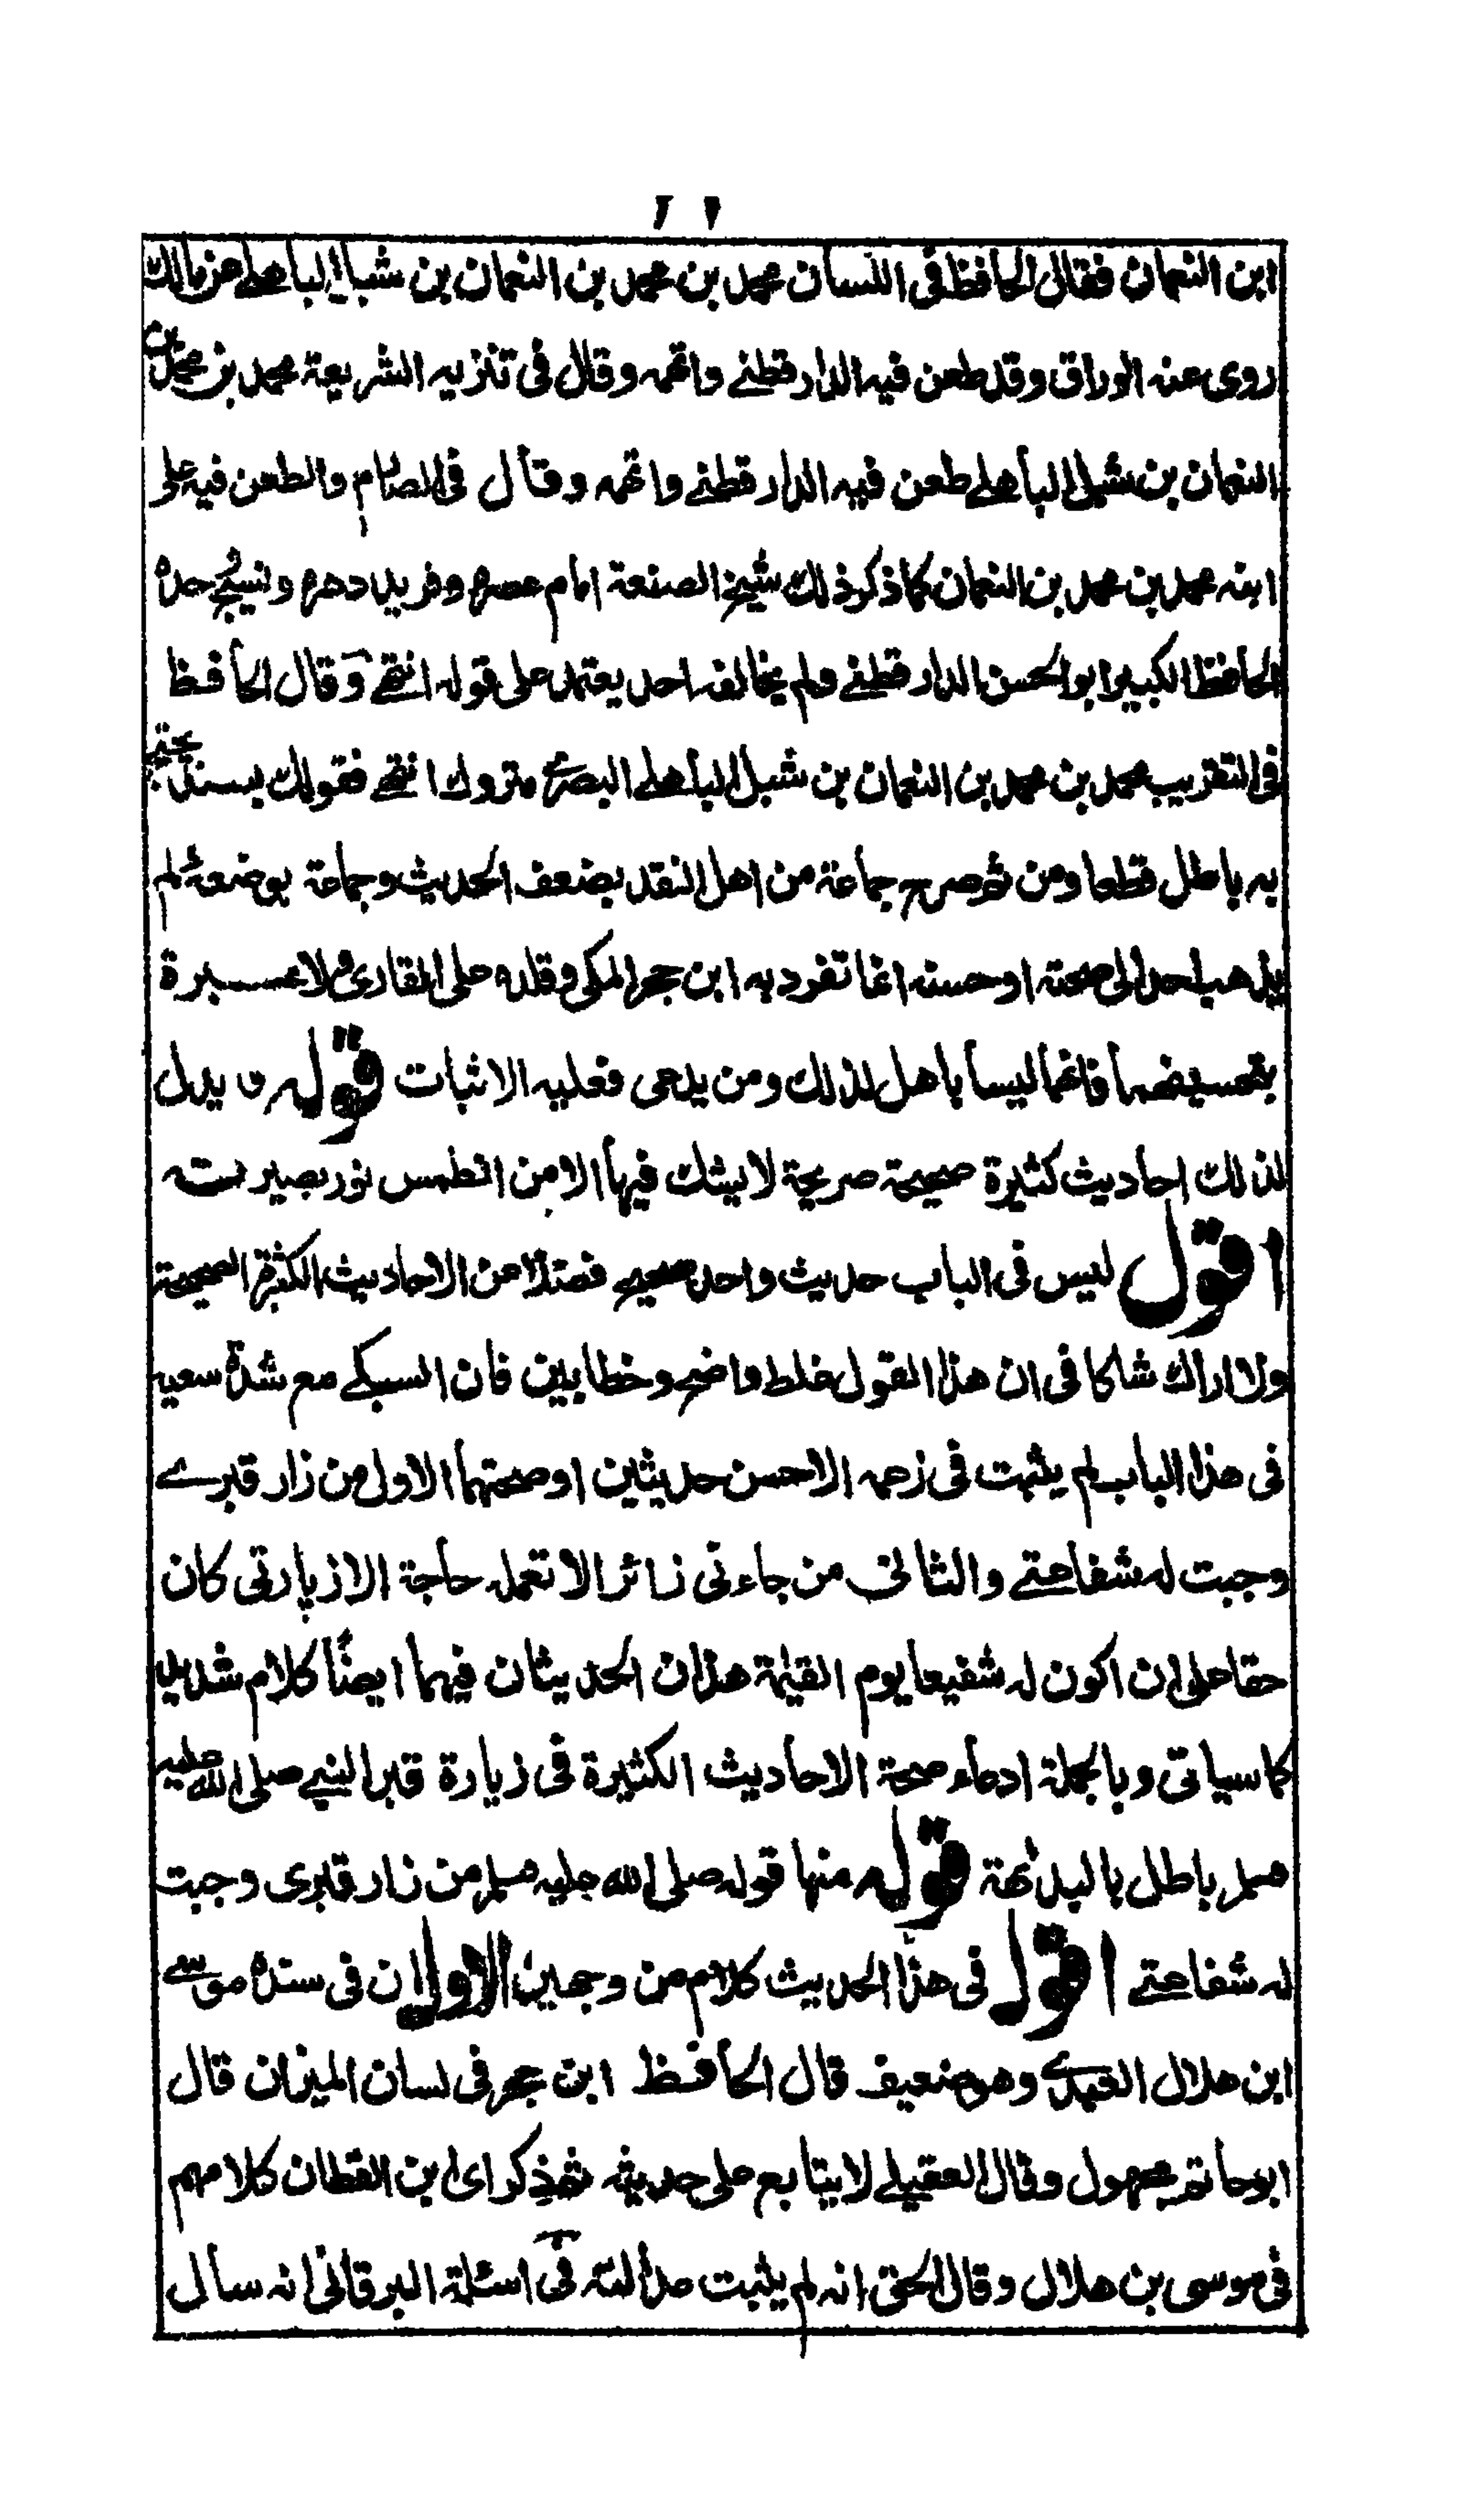 ابن النعمان فقال الحافظ فى اللسان محمد بن محمد بن النعمان بن شبل الباهلى عن مالك
روى عنه الوراق وقد طعن فيه الدارقطنے واتهمه وقال فى تنزيه الشريعة محمد بن محمد بن
النعمان بن شبل الباهلے طعن فيه الدارقطنے واتهمه وقال فى الصارم والطعن فيه على
ابنه محمد بن محمد بن النعمان كما ذكر ذلك شيخ الصنعة امام عصره وفريد دهره ونسيج وحده
الحافظ الكبير ابو الحسن الدارقطنے ولم يخالفه احد يعتمد على قوله انتهے وقال الحافظ
فى التقريب محمد بن محمد بن النعمان بن شبل الباهلے البصرے متروك انتهے فقولك بسند يحتج
به باطل قطعا ومن ثم صرح جماعة من اهل النقد بضعف الحديث وجماعة بوضعه لم
يذهب احد الى صحته او حسنه انما تفرد به ابن حجر المكى وقلده على القارى ولا عبرة
بتصحيحهما فانهما ليسا باهل لذلك ومن يدعى فعليه الاثبات قوله ويدل
لذلك احاديث كثيرة صحيحة صريحة لا يشك فيها الا من انطمس نور بصيرته
اقول ليس فى الباب حديث واحد صحيح فضلا من الاحاديث الكثيرة الصحيحة
ولا اراك شاكا فى ان هذا القول غلط واضح وخطا بين فان السبكے مع شدة سعيه
فى هذا الباب لم يثبت فى زعمه الا حسن حديثين او صحتهما الاول من زار قبرے
وجبت له شفاعتے والثانى من جاءنى زائرا لا تعمله حاجة الا زيارتى كان
حقا على ان اكون له شفيعا يوم القيمة هذان الحديثان فيهما ايضًا كلام شديد
كما سياتى وبالجملة ادعاء صحة الاحاديث الكثيرة فى زيارة قبر النبے صلى الله عليه
وسلم باطل بالبداهة قوله منها قوله صلى الله عليه وسلم من زار قبرى وجبت
له شفاعتے اقول فى هذا الحديث كلام من وجهين الاول ان فى سنده موسے
ابن هلال العبدے وهو ضعيف قال الحافظ ابن حجر فى لسان الميزان قال
ابو حاتم مجهول وقال العقيلے لا يتابع على حديثه ثم ذكر اى ابن القطان كلامهم
فى موسى بن هلال وقال الحق انه لم يثبت عدالته وفى اسئلة البرقانى انه سأل